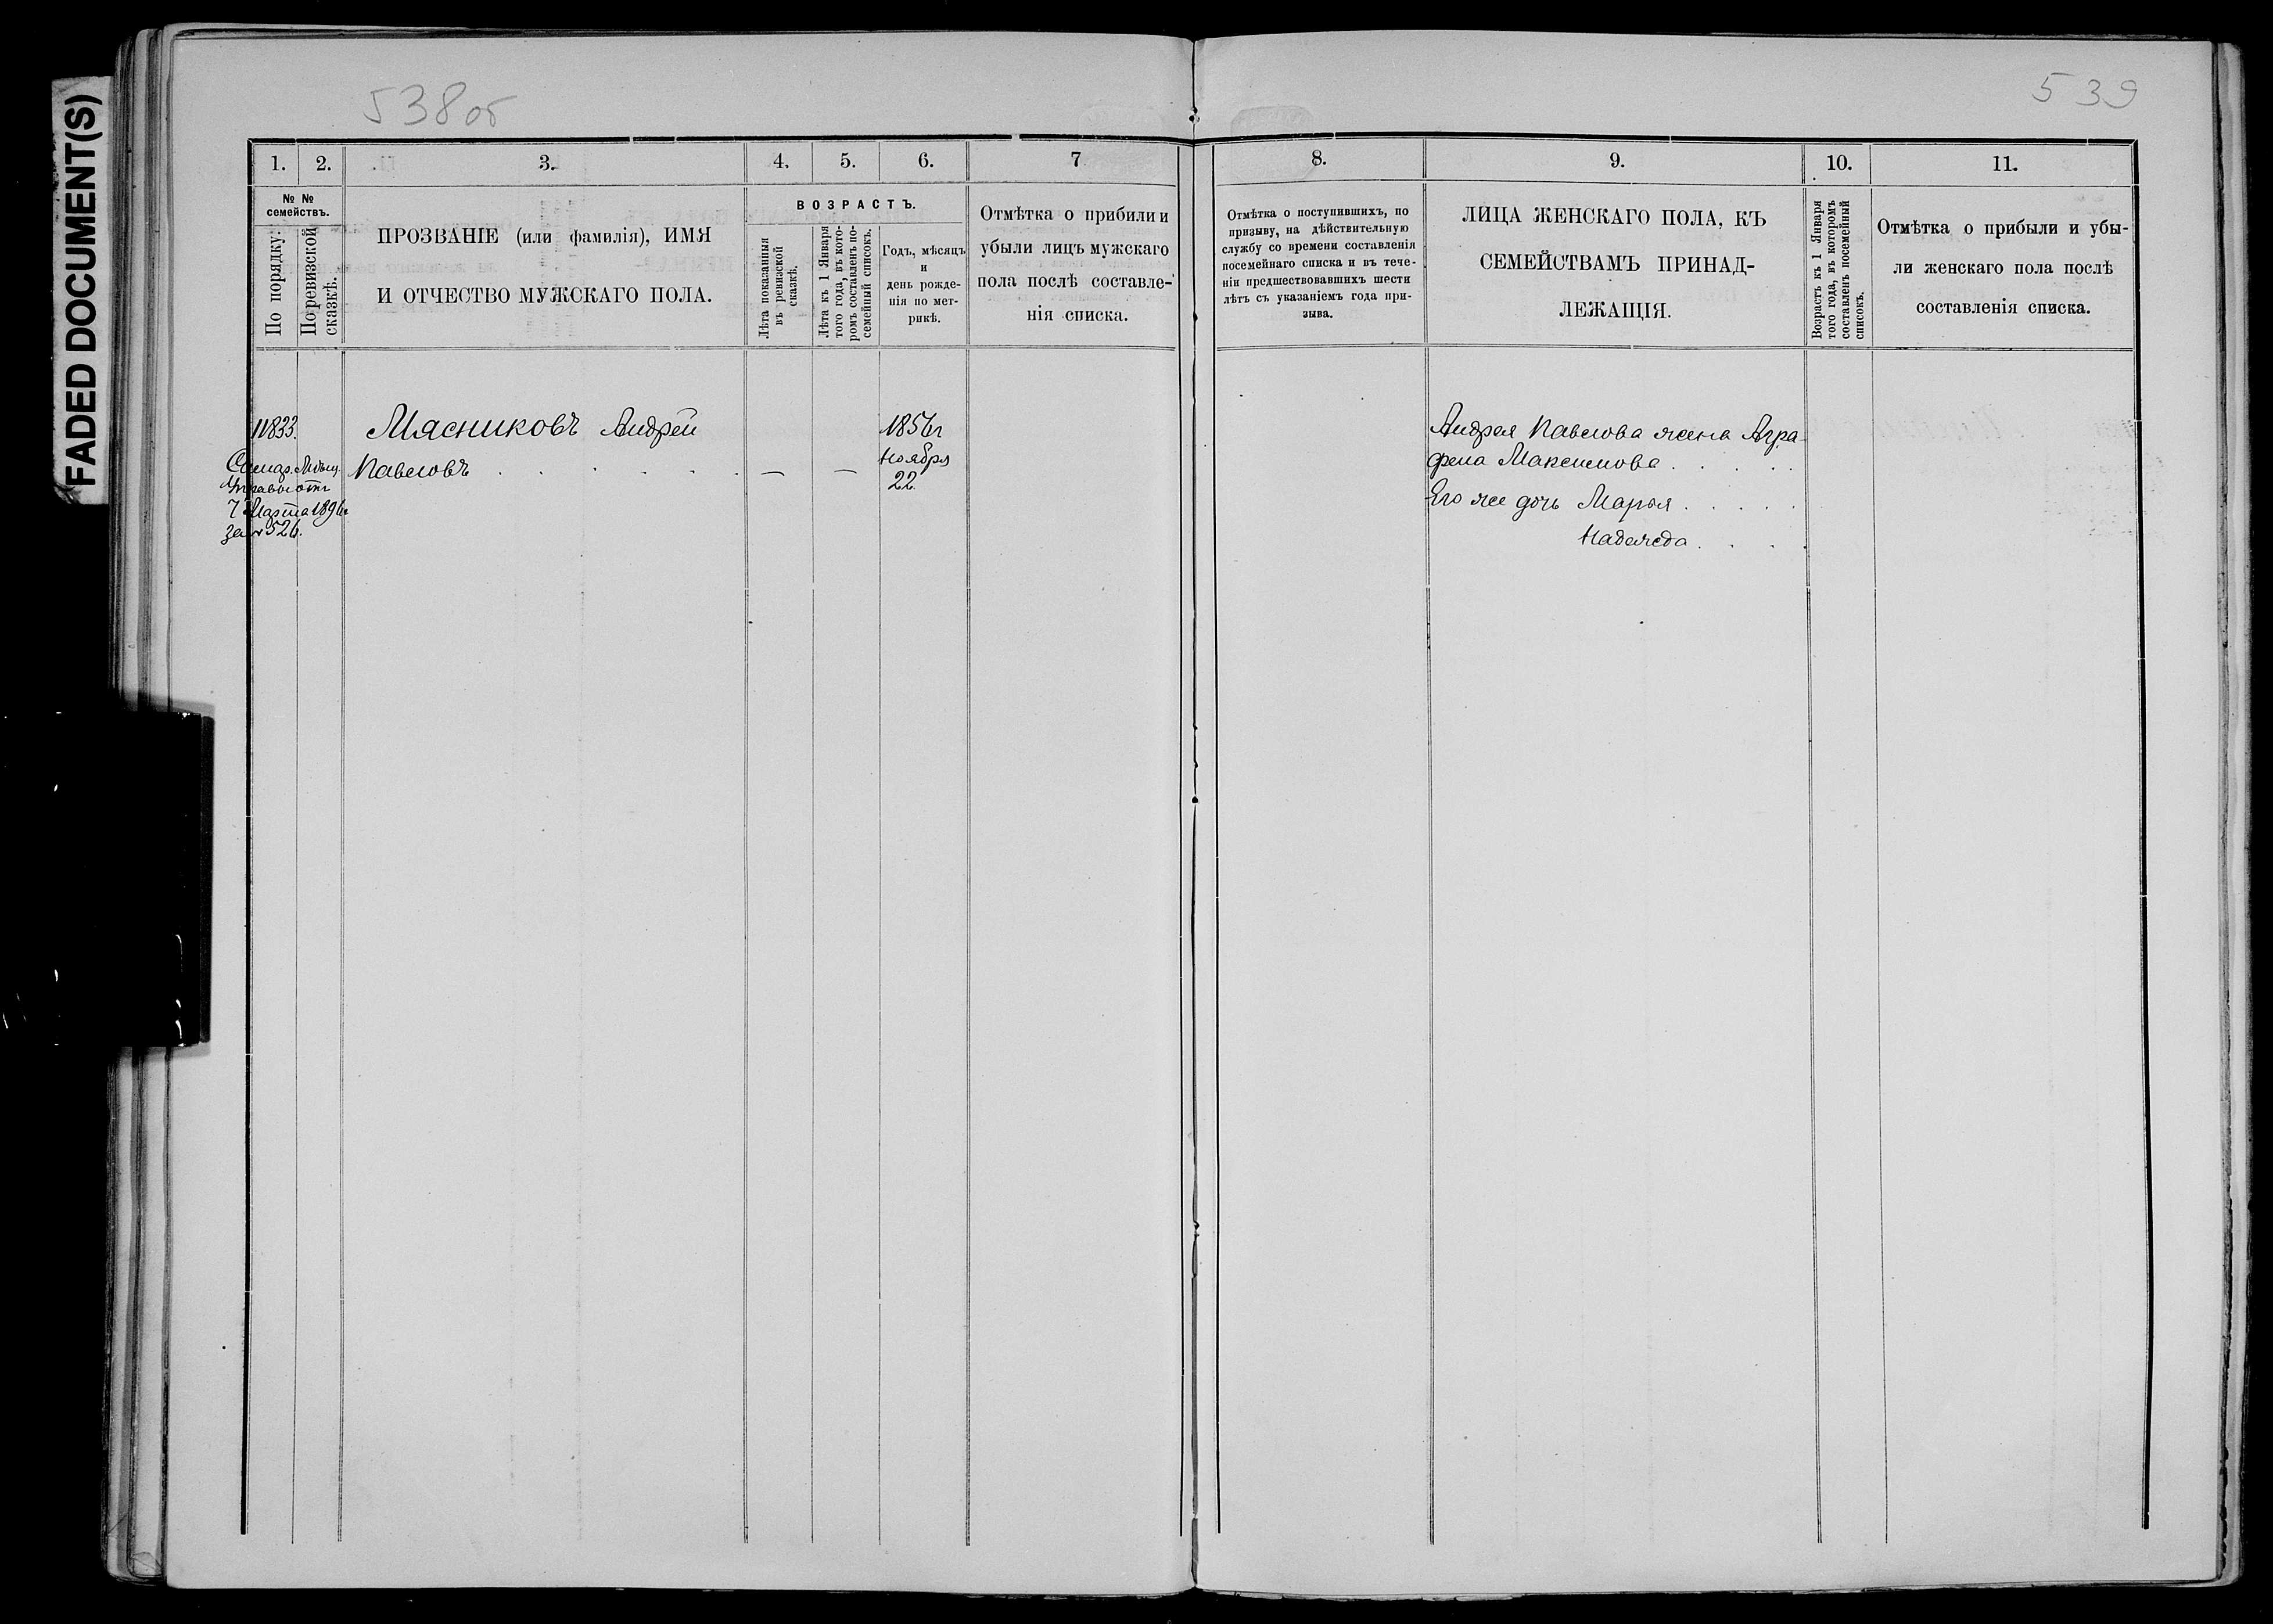 FADED DOCUMENT(S)
538об
539
1.
2.
3.
4.
5.
6.
7
№ №
семействъ.
По порядку.
По ревизской
сказкѣ.
ПРОЗВАНІЕ (или фамилія), ИМЯ
И ОТЧЕСТВО МУЖСКАГО ПОЛА.
ВОЗРАСТЪ.
Лѣта показанія
въ ревизской
сказкѣ.
Лѣта къ 1 Января
того года, въ кото-
ромъ составленъ по-
семейный списокъ.
Годъ, мѣсяцъ
и
день рожде-
нія по мет-
рикѣ.
Отмѣтка о прибыли и
убыли лицъ мужскаго
пола послѣ составле-
нія списка.
11833.
Самар. Мѣщ.
Управы отъ
7 Марта 1896г
за № 526.
Мясниковъ Андрей
Павловъ . . . . . . — —
1856г
Ноября
22.
8.
9.
10.
11.
Отмѣтка о поступившихъ, по
призыву, на дѣйствительную
службу со времени составленія
посемейнаго списка и въ тече-
ніи предшествовавшихъ шести
лѣтъ съ указаніемъ года при-
зыва.
ЛИЦА ЖЕНСКАГО ПОЛА, КЪ
СЕМЕЙСТВАМЪ ПРИНАД-
ЛЕЖАЩІЯ.
Возрастъ къ 1 Января
того года, въ которомъ
составленъ посемейный
списокъ.
Отмѣтка о прибыли и убы-
ли женскаго пола послѣ
составленія списка.
Андрея Павлова жена Агра-
фена Максимова . . . . .
Его же дочь Марья . . . . .
Надежда . . . .